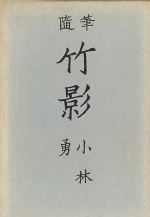 隨筆
竹影
小林
勇